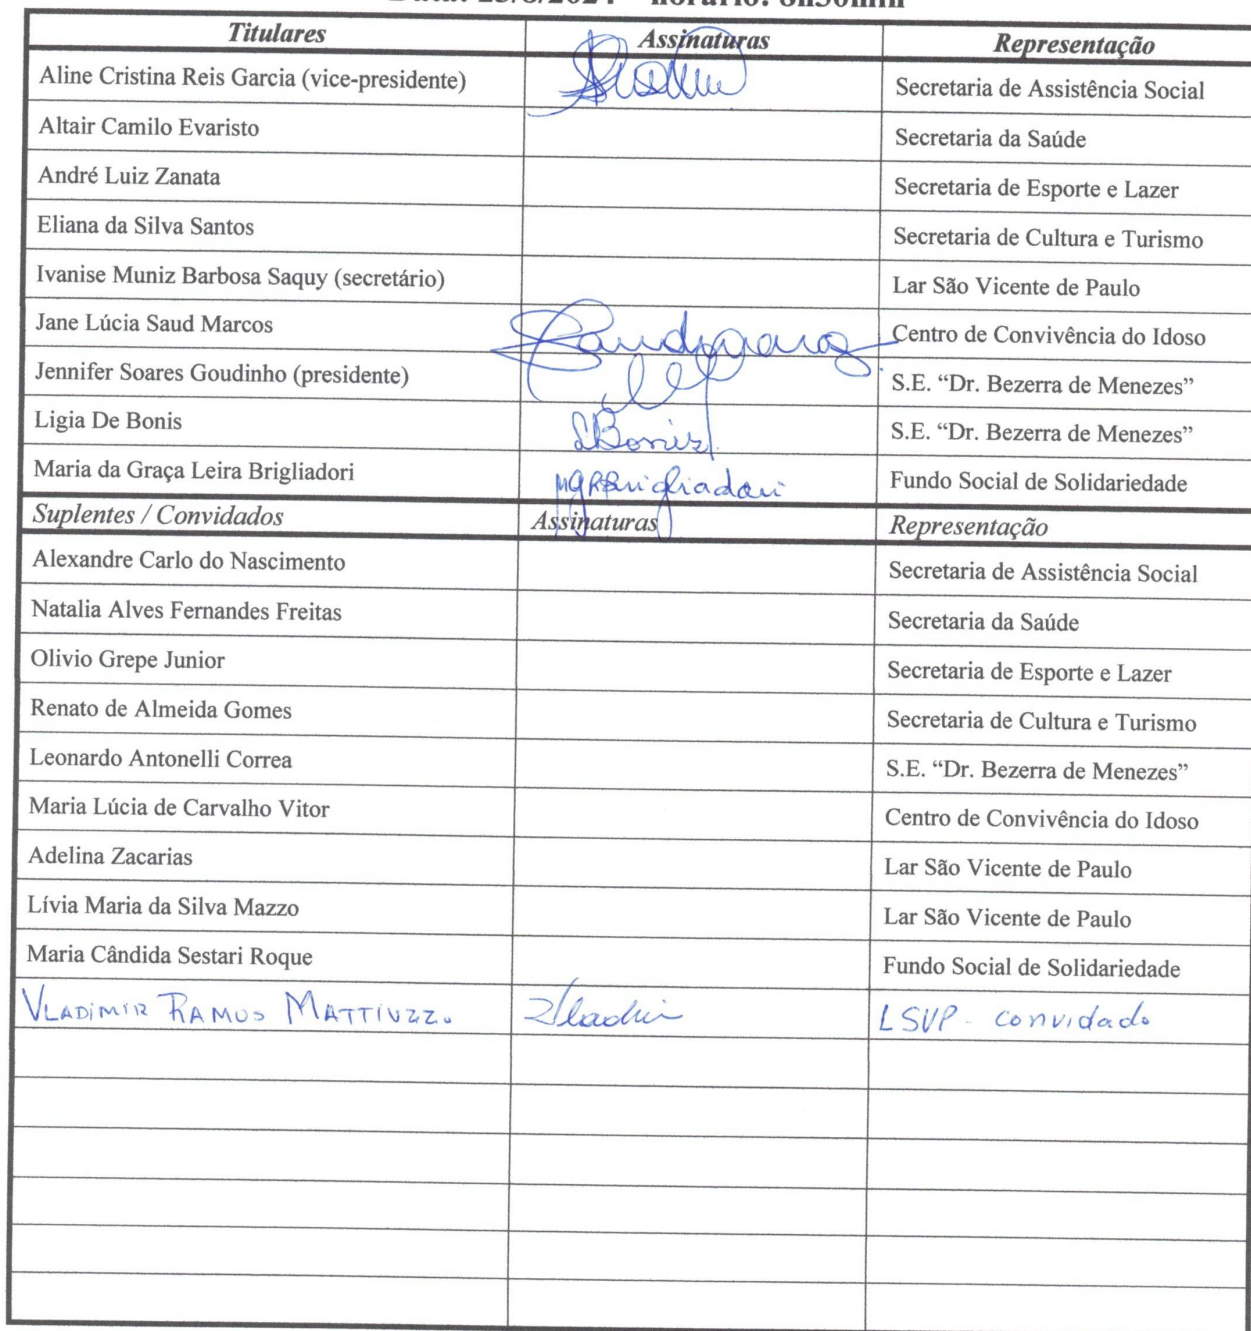 Data: 23/8/2024 – horário: 8h30min
Titulares Assinaturas Representação
Aline Cristina Reis Garcia (vice-presidente) Secretaria de Assistência Social
Altair Camilo Evaristo Secretaria da Saúde
André Luiz Zanata Secretaria de Esporte e Lazer
Eliana da Silva Santos Secretaria de Cultura e Turismo
Ivanise Muniz Barbosa Saquy (secretário) Lar São Vicente de Paulo
Jane Lúcia Saud Marcos Centro de Convivência do Idoso
Jennifer Soares Goudinho (presidente) S.E. “Dr. Bezerra de Menezes”
Ligia De Bonis LBonis S.E. “Dr. Bezerra de Menezes”
Maria da Graça Leira Brigliadori Fundo Social de Solidariedade
Suplentes / Convidados Assinaturas Representação
Alexandre Carlo do Nascimento Secretaria de Assistência Social
Natalia Alves Fernandes Freitas Secretaria da Saúde
Olivio Grepe Junior Secretaria de Esporte e Lazer
Renato de Almeida Gomes Secretaria de Cultura e Turismo
Leonardo Antonelli Correa S.E. “Dr. Bezerra de Menezes”
Maria Lúcia de Carvalho Vitor Centro de Convivência do Idoso
Adelina Zacarias Lar São Vicente de Paulo
Lívia Maria da Silva Mazzo Lar São Vicente de Paulo
Maria Cândida Sestari Roque Fundo Social de Solidariedade
VLADIMIR RAMOS MATTIUZZO Vladimir LSVP - convidado